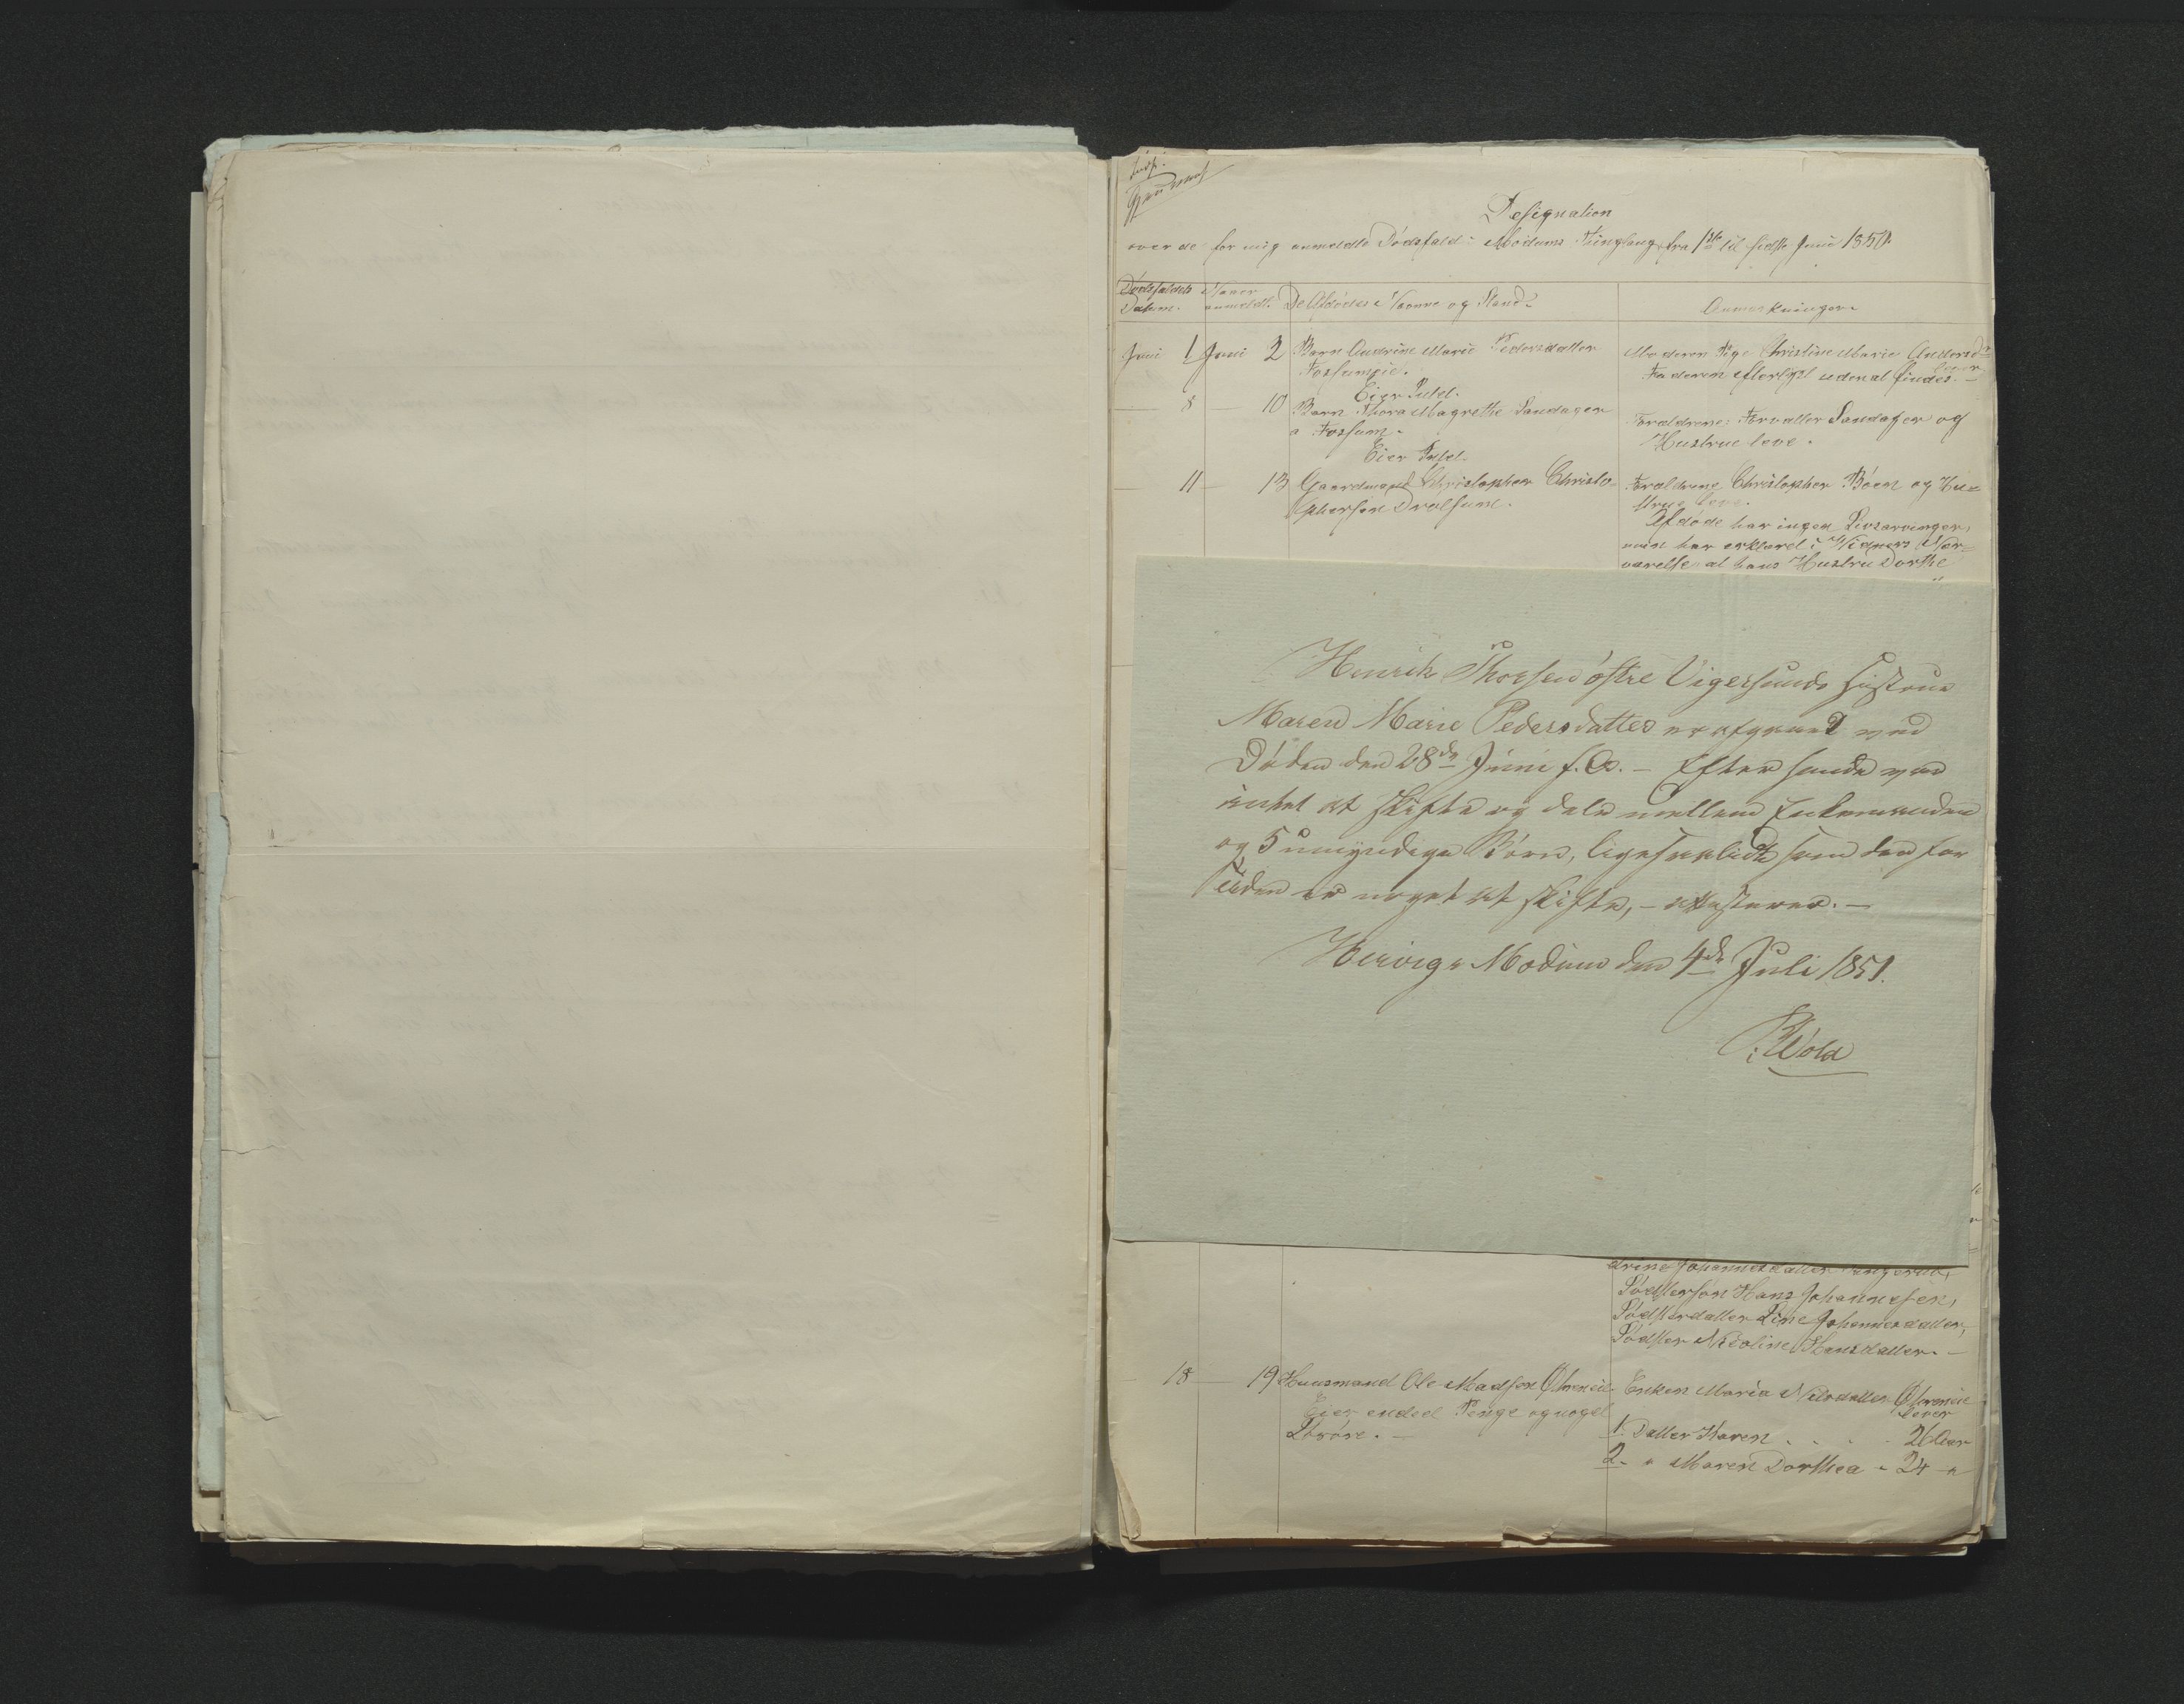 Designation
over de for mig anmeldte Dødsfald i Modums Tinglaug fra 1ste til sidste Juni 1850.
Dødsfaldets Datum. Naar anmeldt. De Afdødes Navne og Stand. Anmerkninger.
Juni 1 Juni 2 Barn Andrine Marie Pedersdatter
Fossumeie.
Eier Intet.
Moderen Pige Christine Marie Andersd
Faderen efterlyst uden at findes. –
— 8 — 10 Barn Thora Magrethe Sandager
a Fossum.
Eier Intet.
Forældrene: Forvalter Sandager og
Hustrue leve.
— 11 — 13 Gaardmand Christopher Christo-
phersen Drolsum.
Forældrene Christopher Böen og Hu-
strue leve.
Afdøde har ingen Livsarvinger,
men har erklæret i Vidners Nær-
værelse at hans Hustru Dorthe
Henrik Thorsen østre Vigersunds Hustrue
Maren Marie Pedersdatter er afgaaet ved
Døden den 28de Juni f.A. – Efter hende var
intet at skifte og dele mellem Enkemanden
og 5 umyndige Børn, ligesaalidt som der for
Tiden er noget at skifte, – attesteres. –
Heivigs Modum den 4de Juli 1851.
Wold
Södstersön Hans Johannesen,
Södsterdatter Line Johannesdatter,
Södster Nicoline Hansdatter. –
18 — 19 Huusmand Ole Madsen
Eier endeel Penge og noget
Enken Maria Nilsdatter
lever
1. Datter Karen . . . 26 Aar
2. " Maren Dorthea – 24 –